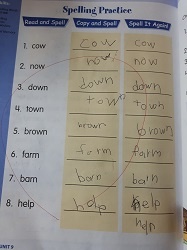 Spelling Practice
Read and Spell Copy and Spell Spell It Again!
1. cow cow cow
2. now now now
3. down down down
4. town town town
5. brown brown brown
6. farm farm farm
7. barn barn barn
8. help help help
help
UNIT 9